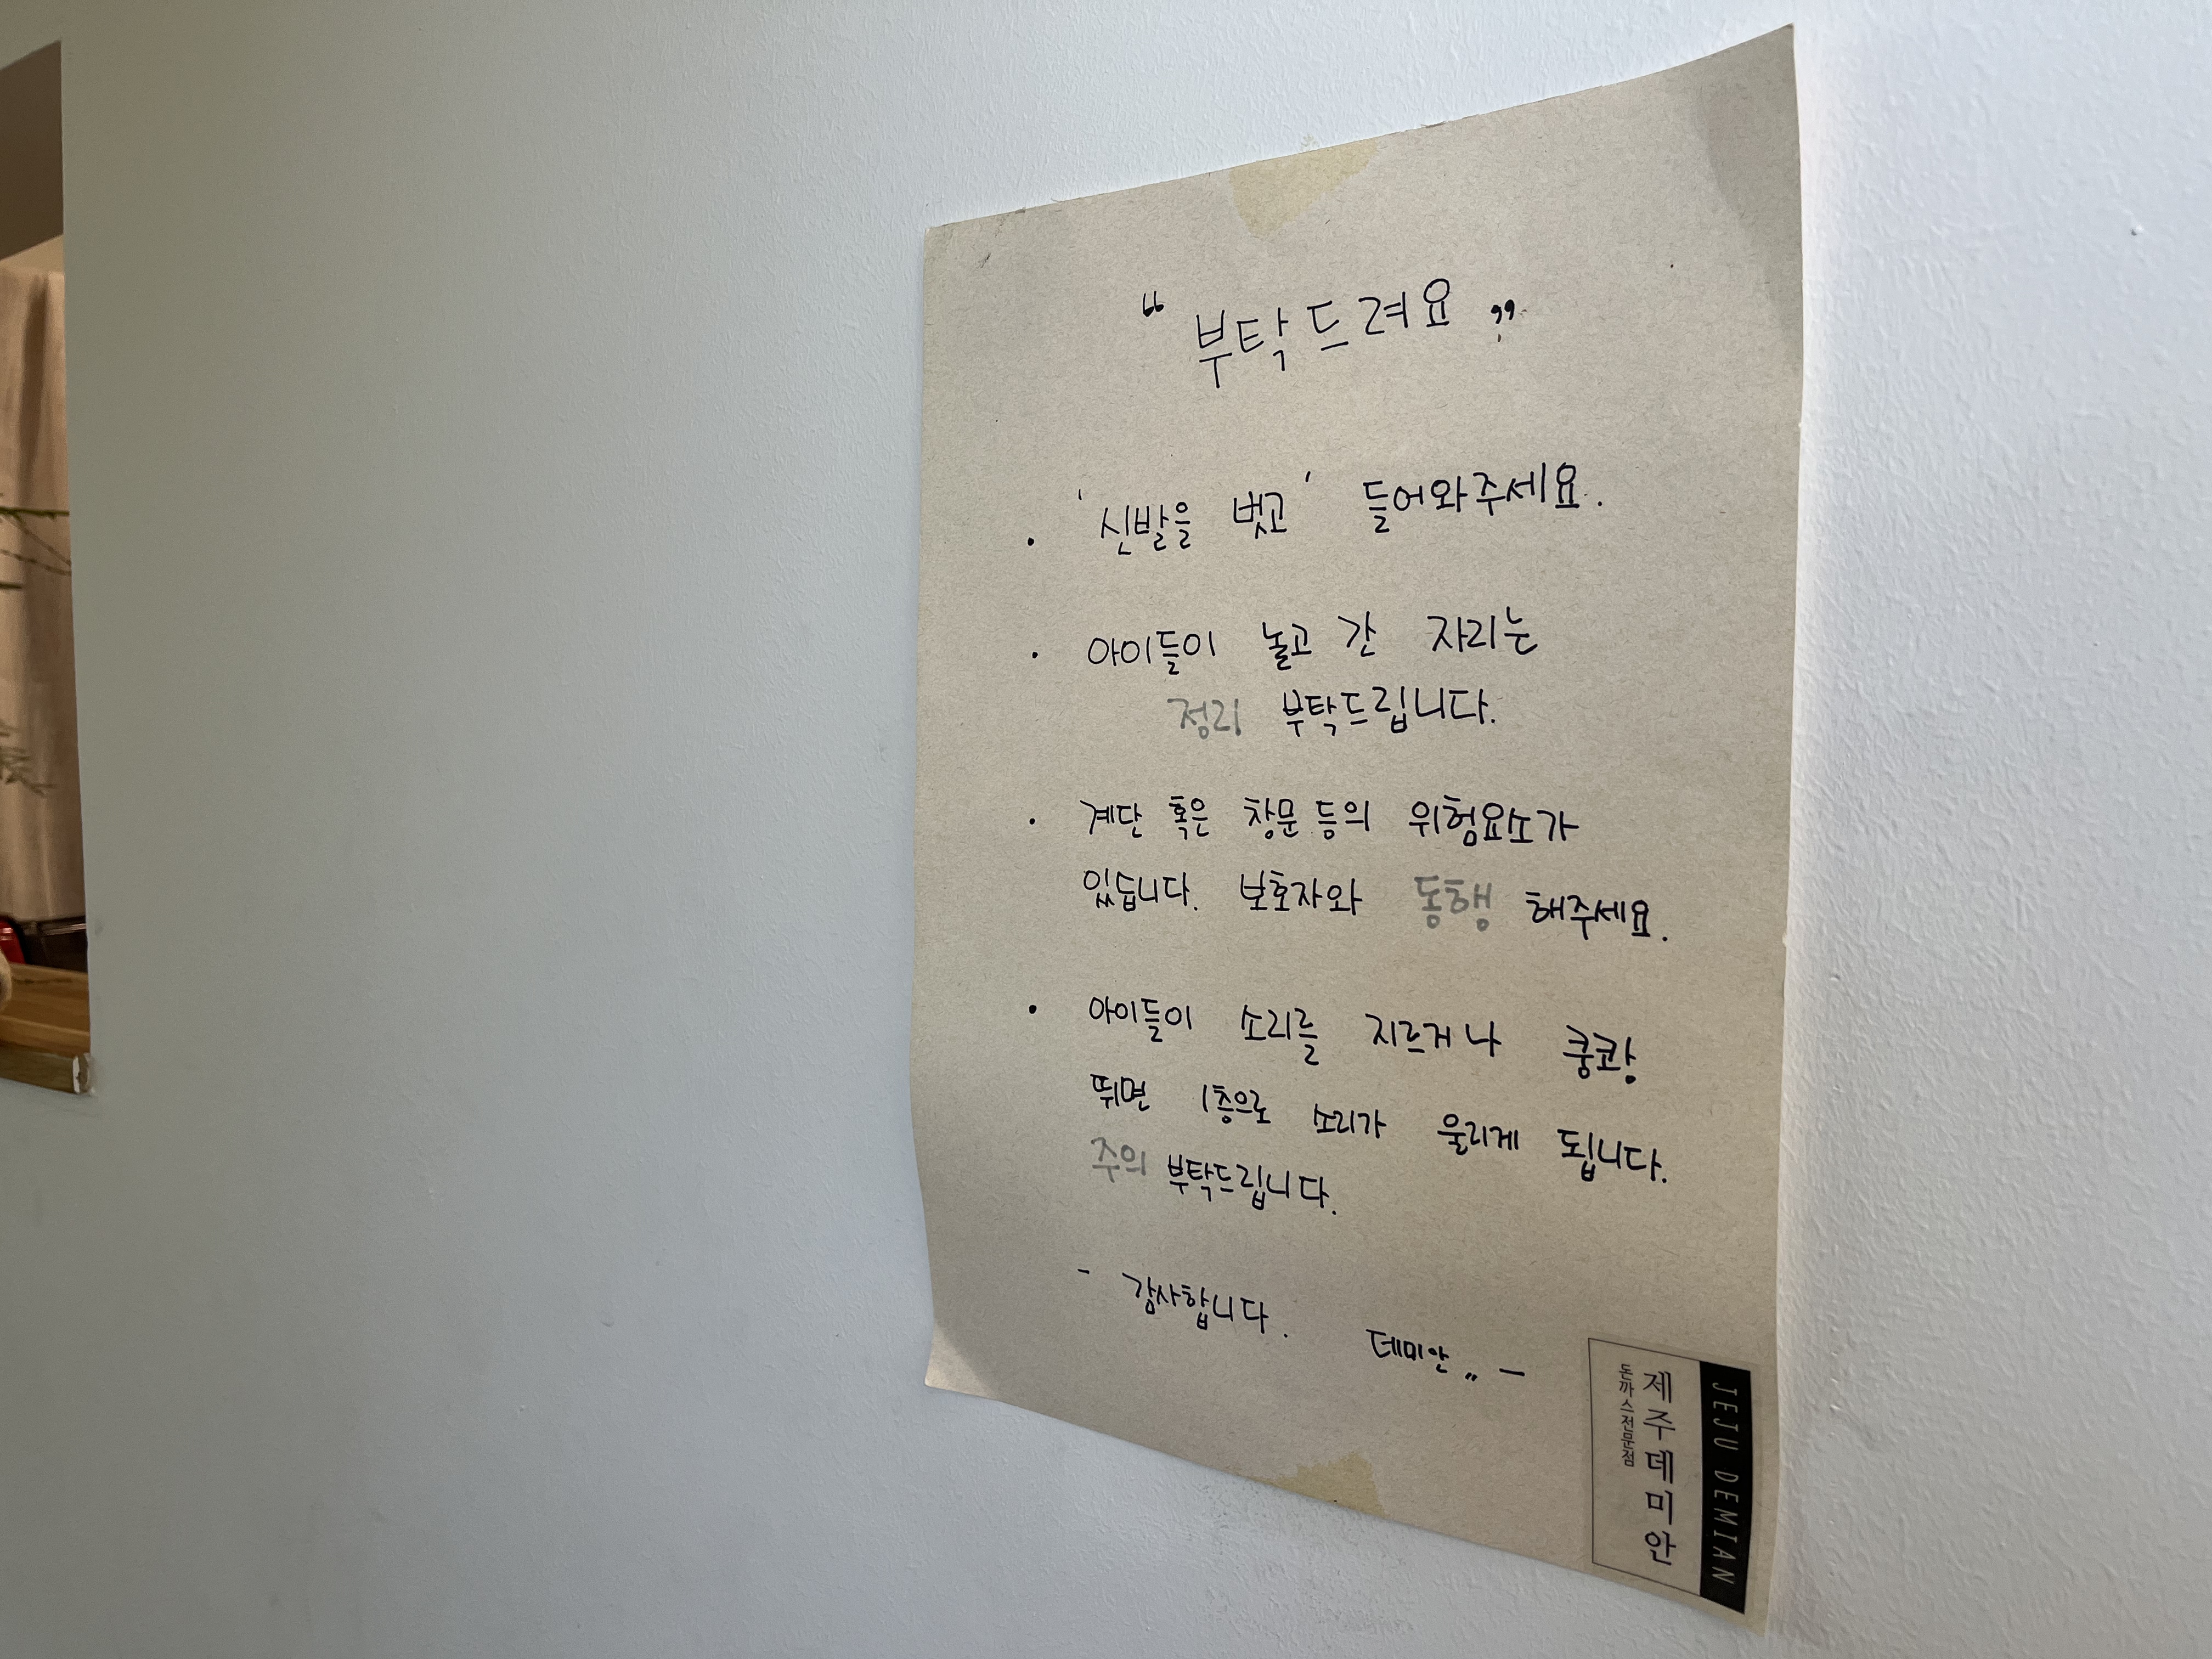 “ 부탁드려요 ”
· '신발을 벗고' 들어와주세요.
· 아이들이 놀고 간 자리는
정리 부탁드립니다.
· 계단 혹은 창문 등의 위험요소가
있습니다. 보호자와 동행 해주세요.
· 아이들이 소리를 지르거나 쿵쾅
뛰면 1층으로 소리가 울리게 됩니다.
주의 부탁드립니다.
- 감사합니다. 데미안 〃 -
JEJU DEMIAN
제주데미안
돈까스전문점